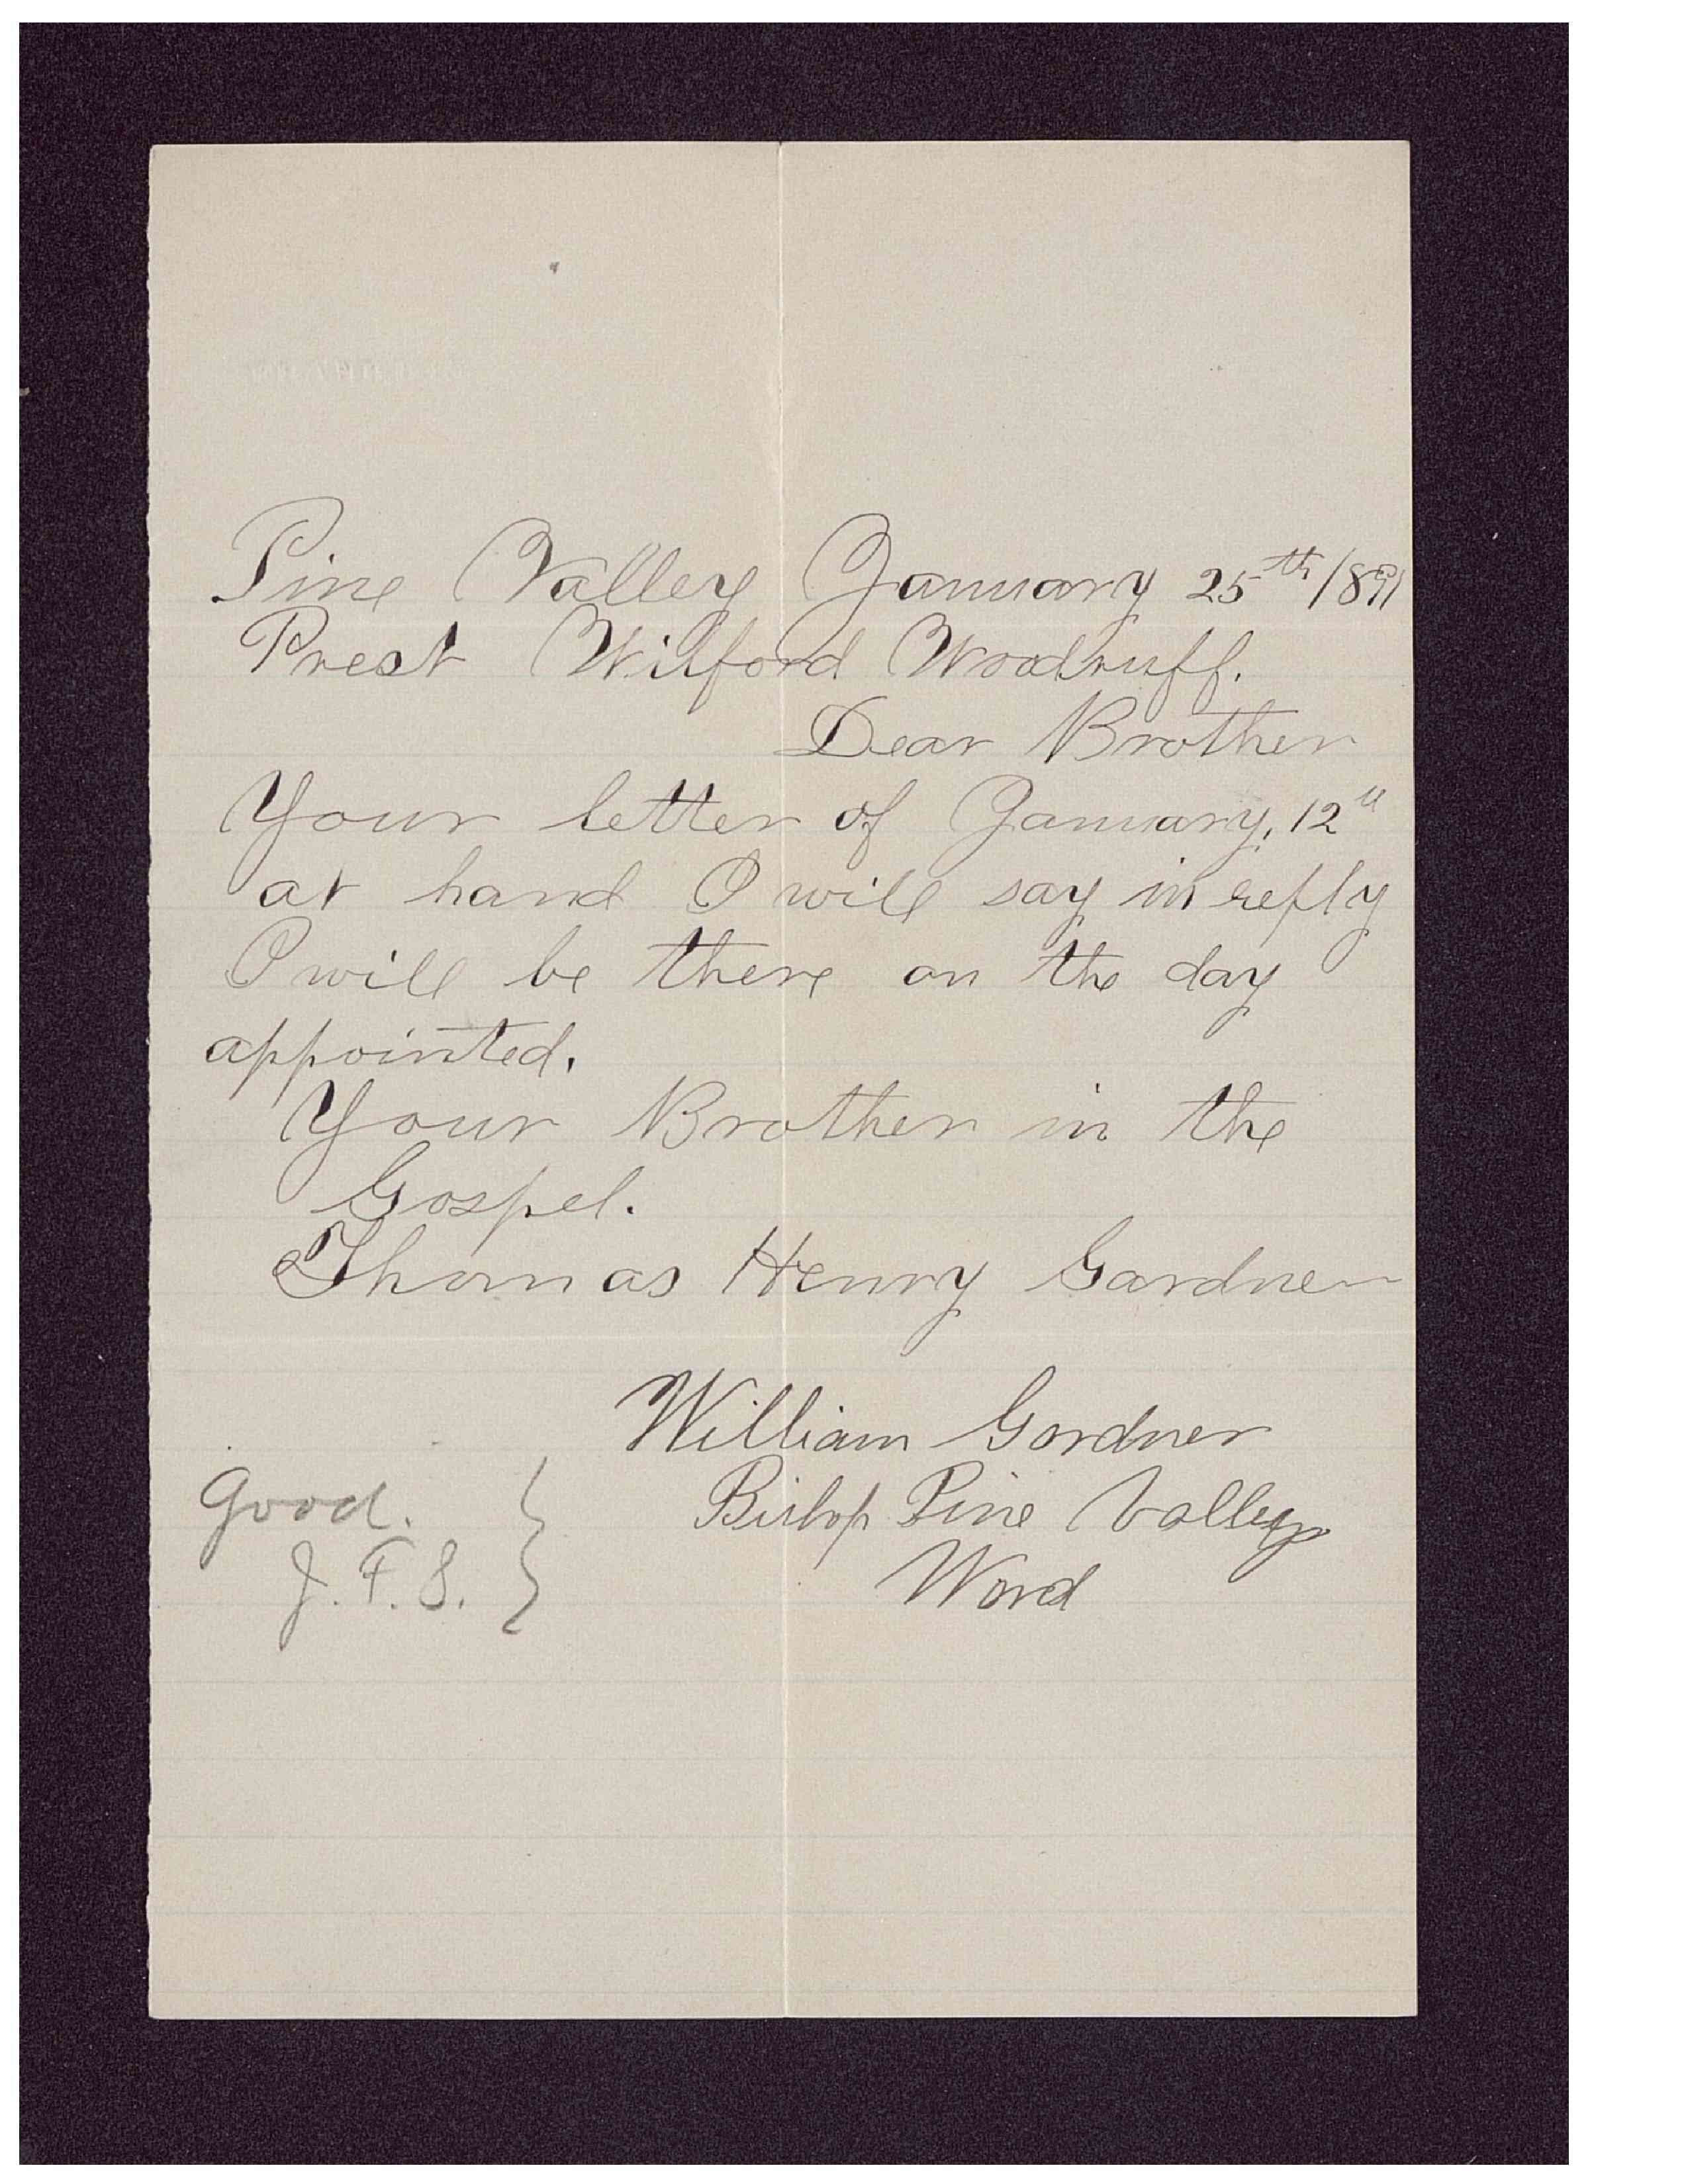 Pine Valley January 25th /891
Prest Wilford Woodruff.
Dear Brother
Your letter of January, 12th
at hand I will say in reply
I will be there on the day
appointed.
Your Brother in the
Gospel.
Thomas Henry Gardner
William Gardner
Bishop Pine Valley
Ward
Good.
J. F. S.